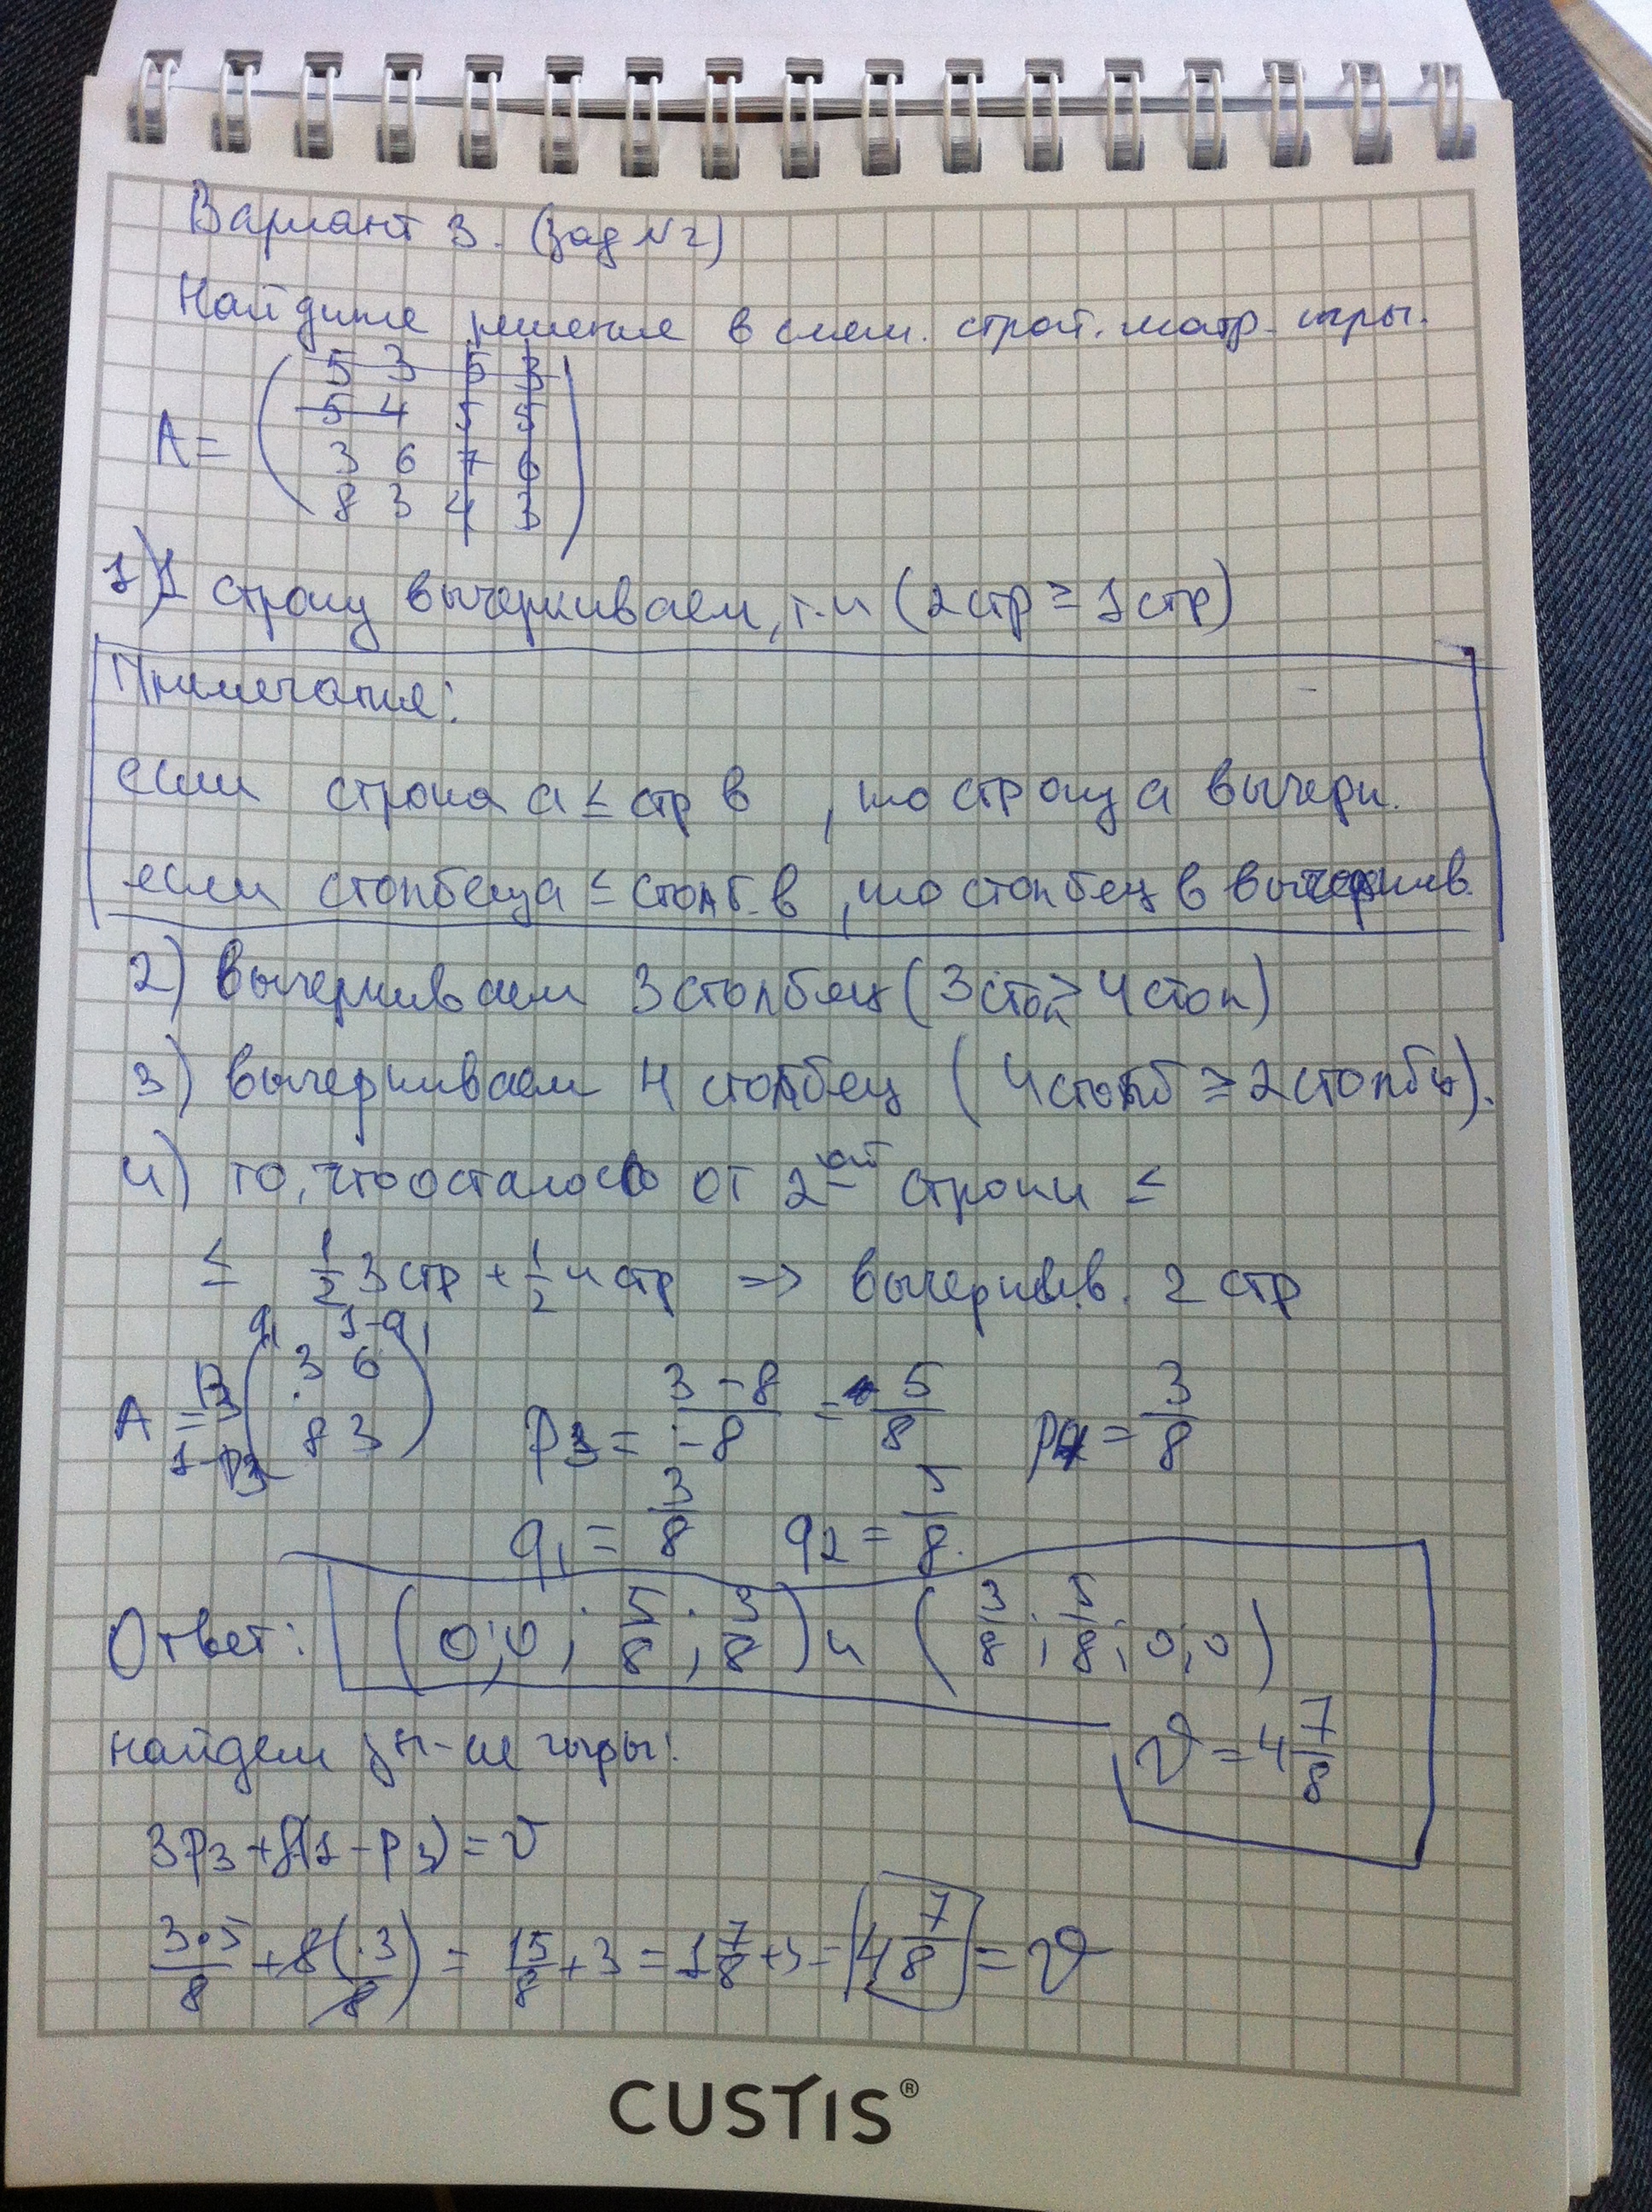 Вариант 3. (зад №2)
Найдите решение в смеш. страт. матр. игры.
A = ( 5 3 5 3
5 4 5 5
3 6 7 6
8 3 4 3 )
1) 1 строку вычеркиваем, т.к (2 стр ≥ 1 стр)
Примечание:
если строка a ≤ стр в, то строку a вычерк.
если столбец a ≤ столб. в, то столбец в вычеркив.
2) вычеркиваем 3 столбец (3 стол ≥ 4 стол)
3) вычеркиваем 4 столбец (4 столб ≥ 2 столбц).
4) то, что осталось от 2-ой строки ≤
≤ 1/2 3 стр + 1/2 4 стр => вычеркив. 2 стр
q1 1-q1
A = p3 ( 3 6
1-p3 8 3 )
p3 = 3-8/-8 = 5/8 p4 = 3/8
q1 = 3/8 q2 = 5/8.
Ответ: (0; 0; 5/8; 3/8) и (3/8; 5/8; 0; 0)
найдем зн-ие игры:
v = 4 7/8
3p3 + 8(1-p3) = v
3·5/8 + 8(·3/8) = 15/8 + 3 = 1 7/8 + 3 = 4 7/8 = v
CUSTIS®